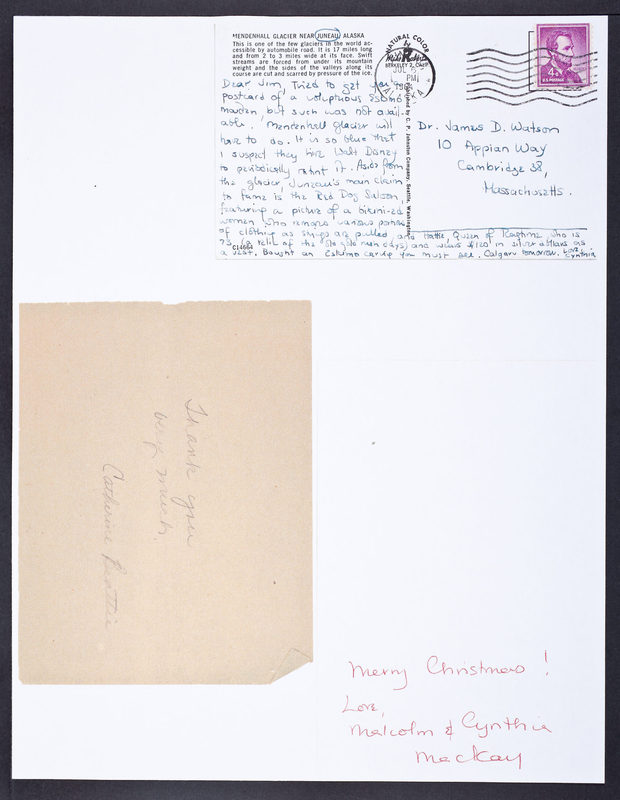 MENDENHALL GLACIER NEAR JUNEAU, ALASKA
This is one of the few glaciers in the world ac-
cessible by automobile road. It is 17 miles long
and from 2 to 3 miles wide at its face. Swift
streams are forced from under its mountain
weight and the sides of the valleys along its
course are cut and scarred by pressure of the ice.
NATURAL COLOR
by
Mike Roberts
BERKELEY 2, CALIF.
JUL
PM
4¢
U.S. POSTAGE
Dear Jim, Tried to get you a
postcard of a voluptuous Eskimo
maiden, but such was not avail-
able. Mendenhall glacier will
have to do. It is so blue that
I suspect they hire Walt Disney
to periodically paint it. Aside from
the glacier, Juneau's main claim
to fame is the Red Dog Saloon,
featuring a picture of a bikini-ed
women who removes various portions
of clothing as strings are pulled, and Hattie, Queen of Ragtime, who is
75 (a relic of the old gold rush days) and wears $120 in silver dollars as
a vest. Bought an Eskimo carving you must see. Calgary tomorrow. Love,
Cynthia
C14664
Published by C. P. Johnston Company, Seattle, Washington
Dr. James D. Watson
10 Appian Way
Cambridge 38,
Massachusetts.
Thank you
very much.
Catherine Beattie
Merry Christmas!
Love,
Malcolm & Cynthia
MacKay